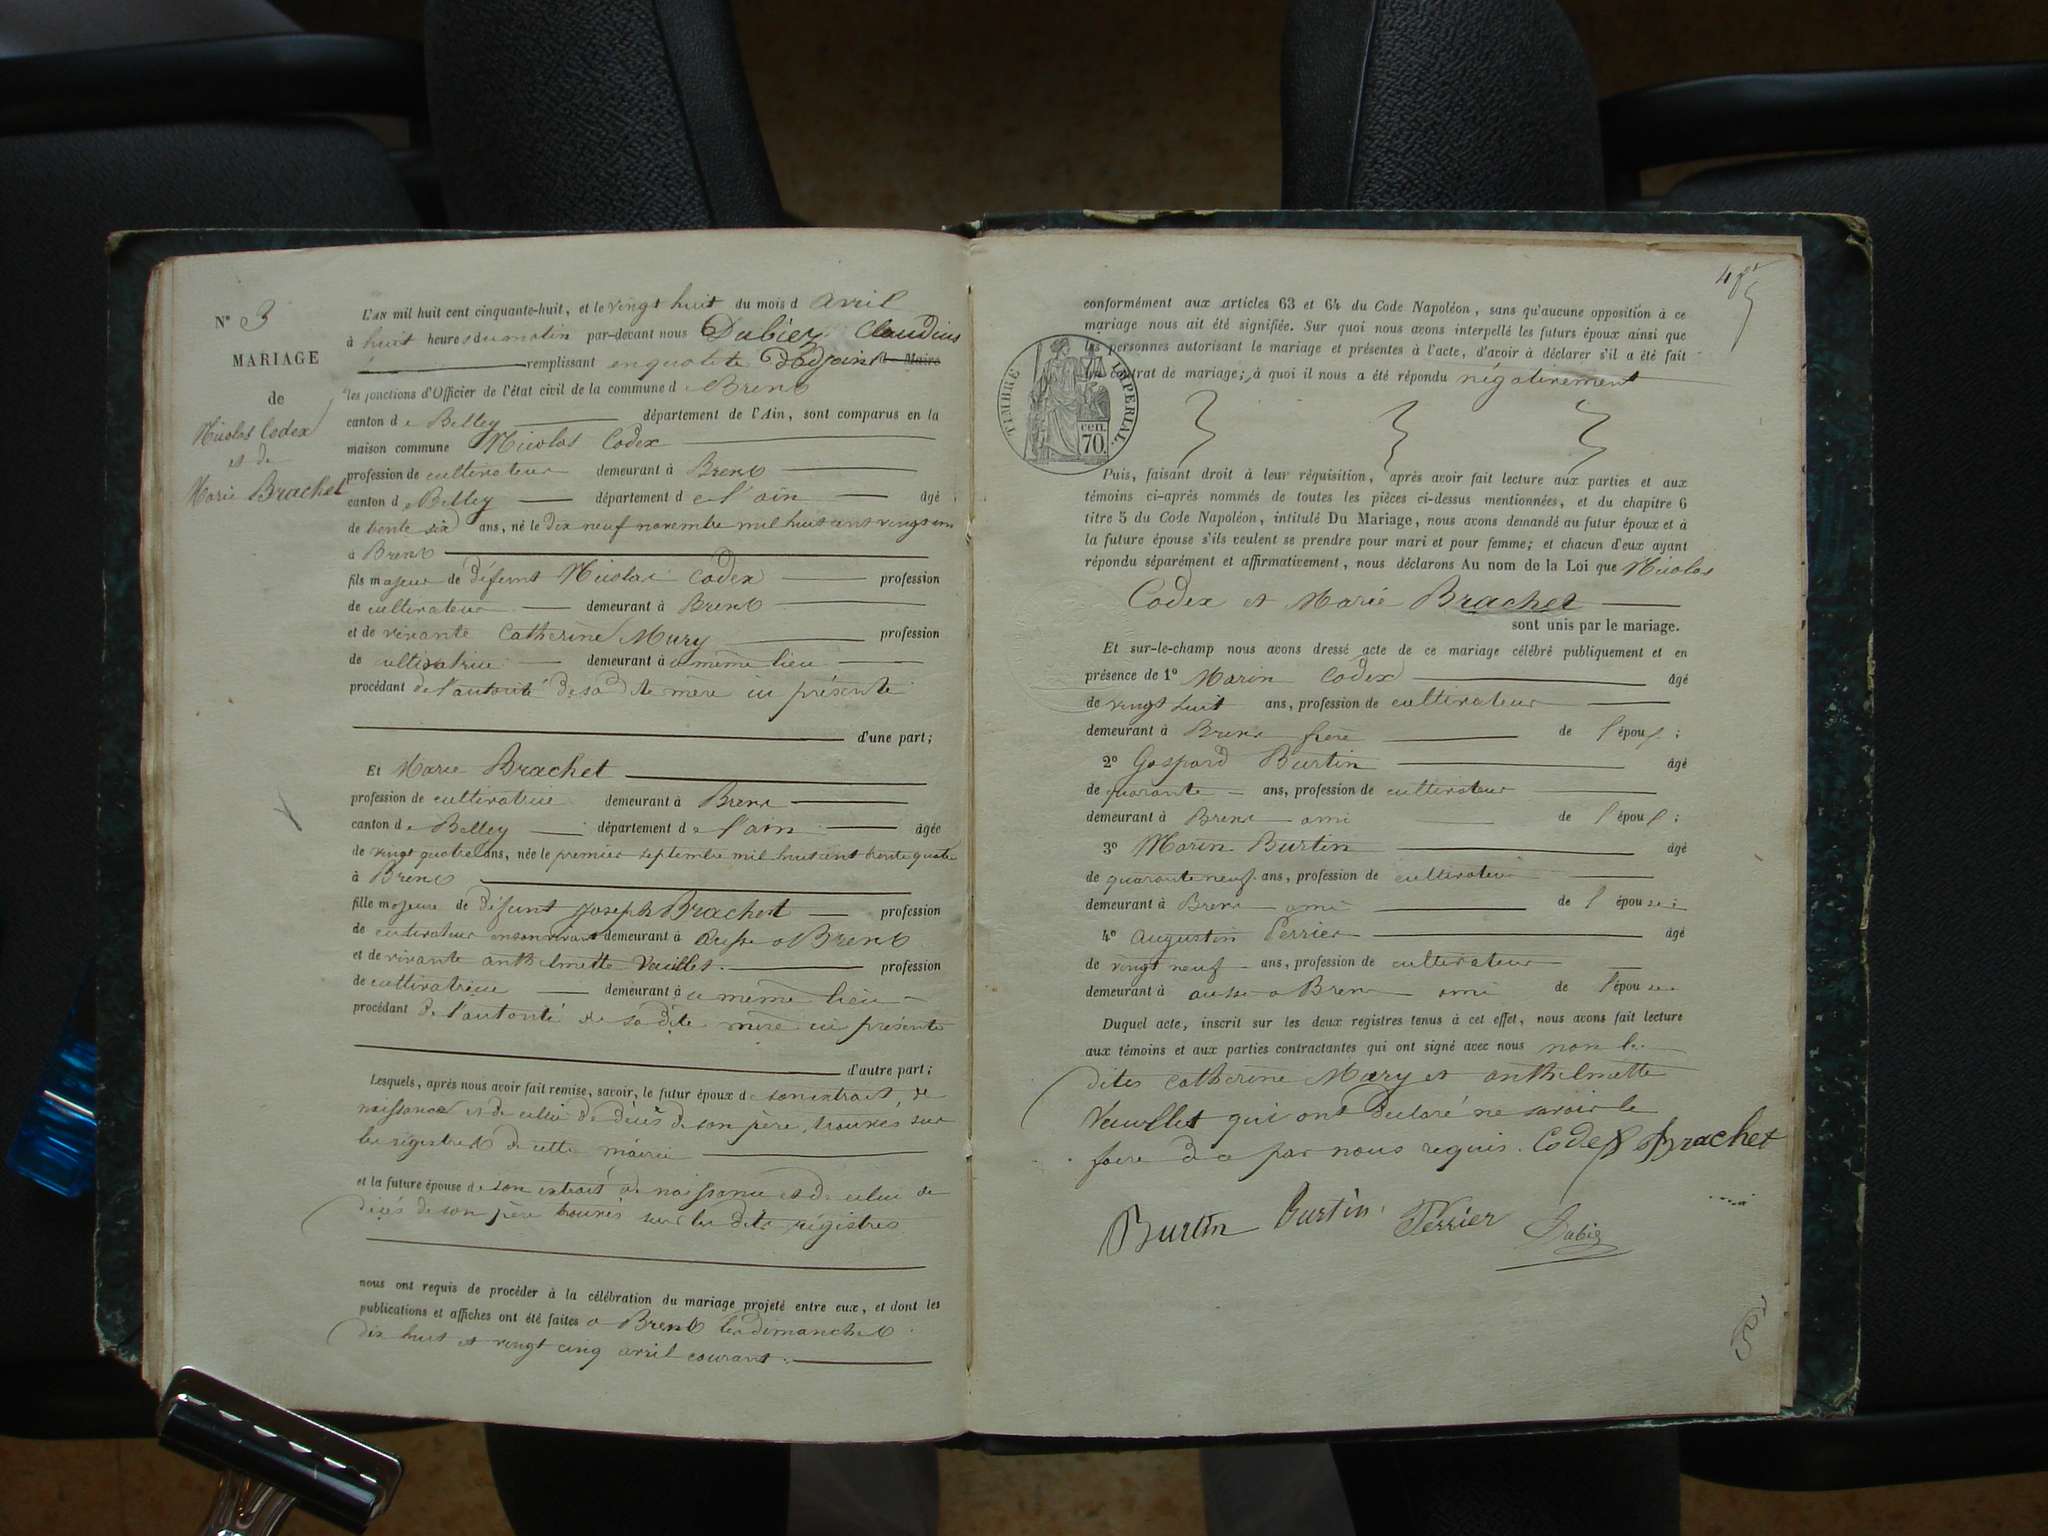 N° 3
MARIAGE
de
Nicolas Codex
et de
Marie Brachet
L'AN mil huit cent cinquante-huit, et le vingt huit du mois d avril
à huit heures du matin par-devant nous Dubiez Claudius
remplissant en qualité d'adjoint d Maire
les fonctions d'Officier de l'état civil de la commune de Brens
canton de Belley département de l'Ain, sont comparus en la
maison commune Nicolas Codex
profession de cultivateur demeurant à Brens
canton de Belley département de l'ain âgé
de trente six ans, né le dix neuf novembre mil huit cent vingt un
à Brens
fils majeur de défunt Nicolas Codex profession
de cultivateur demeurant à Brens
et de vivante Catherine Mury profession
de cultivatrice demeurant à u même lieu
procédant de l'autorité de sa dite mère ici présente
d'une part;
Et Marie Brachet
profession de cultivatrice demeurant à Brens
canton de Belley département de l'ain âgée
de vingt quatre ans, née le premier septembre mil huit cent trente quatre
à Brens
fille majeure de défunt Joseph Brachet profession
de cultivateur en son vivant demeurant à aussi a Brens
et de vivante anthelmette Veuillet profession
de cultivatrice demeurant à u même lieu
procédant de l'autorité de sa dite mère ici présente
d'autre part;
Lesquels, après nous avoir fait remise, savoir, le futur époux de son extrait de
naissance et de celui de décès de son père, trouvés sur
les registres de cette mairie
et la future épouse de son extrait de naissance et de celui de
décès de son père trouvés sur les dits registres
nous ont requis de procéder à la célébration du mariage projeté entre eux, et dont les
publications et affiches ont été faites a Brens les dimanches
dix huit et vingt cinq avril courant.
conformément aux articles 63 et 64 du Code Napoléon, sans qu'aucune opposition à ce
mariage nous ait été signifiée. Sur quoi nous avons interpellé les futurs époux ainsi que
les personnes autorisant le mariage et présentes à l'acte, d'avoir à déclarer s'il a été fait
un contrat de mariage; à quoi il nous a été répondu négativement
TIMBRE IMPERIAL.
cen.
70.
Puis, faisant droit à leur réquisition, après avoir fait lecture aux parties et aux
témoins ci-après nommés de toutes les pièces ci-dessus mentionnées, et du chapitre 6
titre 5 du Code Napoléon, intitulé Du Mariage, nous avons demandé au futur époux et à
la future épouse s'ils veulent se prendre pour mari et pour femme; et chacun d'eux ayant
répondu séparément et affirmativement, nous déclarons Au nom de la Loi que Nicolas
Codex et Marie Brachet
sont unis par le mariage.
Et sur-le-champ nous avons dressé acte de ce mariage célébré publiquement et en
présence de 1° Marin Codex âgé
de vingt huit ans, profession de cultivateur
demeurant à Brens frère de l'époux;
2° Gaspard Burtin âgé
de quarante ans, profession de cultivateur
demeurant à Brens ami de l'époux;
3° Marin Burtin âgé
de quarante neuf ans, profession de cultivateur
demeurant à Brens ami de l'épouse;
4° augustin Perrier âgé
de vingt neuf ans, profession de cultivateur
demeurant à aussi a Brens ami de l'épouse
Duquel acte, inscrit sur les deux registres tenus à cet effet, nous avons fait lecture
aux témoins et aux parties contractantes qui ont signé avec nous non les
dites Catherine Mury et anthelmette
Veuillet qui ont declaré ne savoir le
faire de ce par nous requis. Codex Brachet
Burtin Burtin Perrier Dubiez